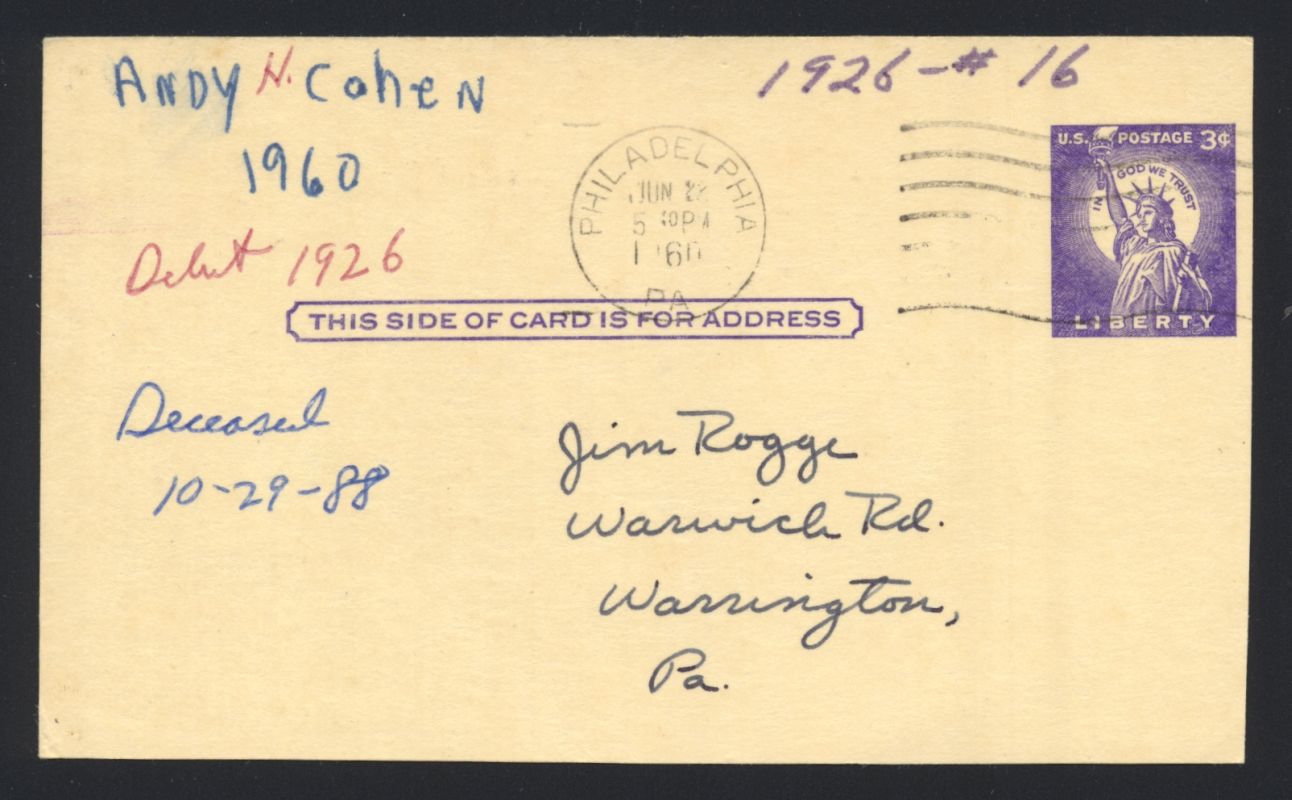 ANDY H. CoheN
1926-# 16
1960
Debut 1926
PHILADELPHIA
JUN
5 PM
1960
PA
U.S. POSTAGE 3¢
IN GOD WE TRUST
LIBERTY
THIS SIDE OF CARD IS FOR ADDRESS
Deceased
10-29-88
Jim Rogge
Warwick Rd.
Warrington,
Pa.